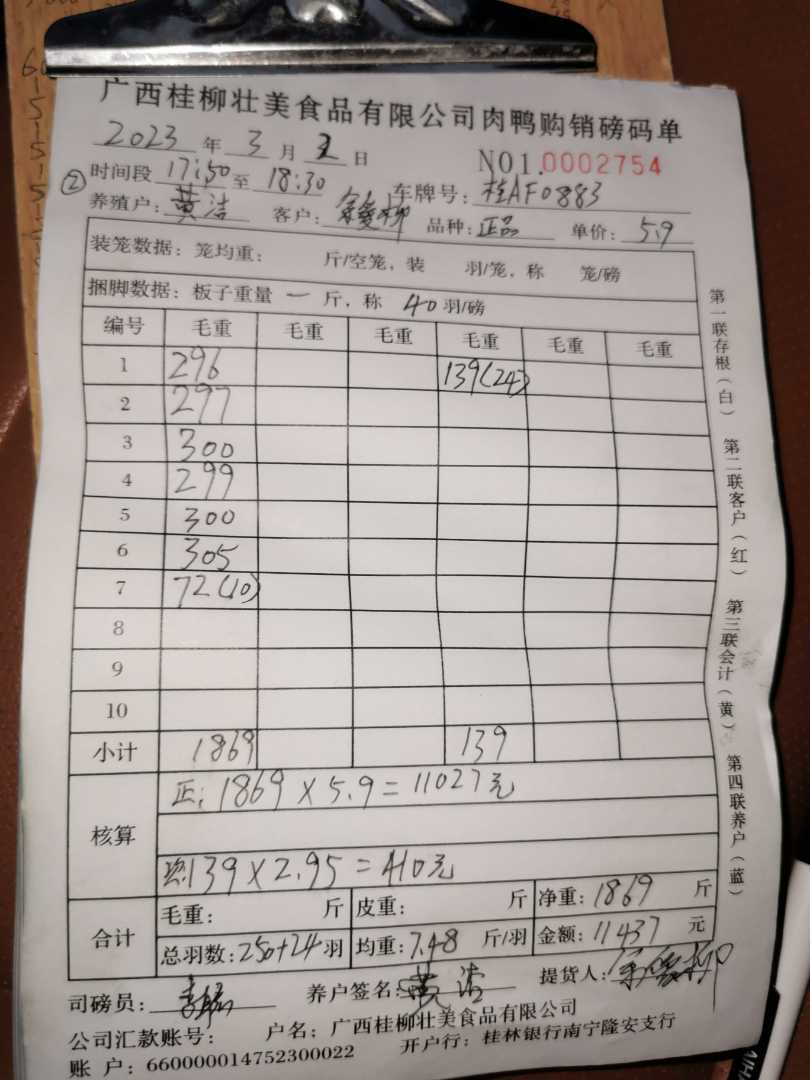 广西桂柳壮美食品有限公司肉鸭购销磅码单
2023 年 3 月 2 日
NO1.0002754
② 时间段 17:50 至 18:30 车牌号: 桂AF0883
养殖户: 黄洁 客户: 品种: 正品 单价: 5.9
装笼数据: 笼均重: 斤/空笼, 装 羽/笼, 称 笼/磅
捆脚数据: 板子重量 一 斤, 称 40 羽/磅
编号 毛重 毛重 毛重 毛重 毛重 毛重
1 296 139(24)
2 297
3 300
4 299
5 300
6 305
7 72(10)
8
9
10
小计 1869 139
核算
正: 1869 × 5.9 = 11027元
139 × 2.95 = 410元
合计
毛重: 斤 皮重: 斤 净重: 1869 斤
总羽数: 250+24 羽 均重: 7.48 斤/羽 金额: 11437 元
司磅员: 养户签名: 黄洁 提货人:
公司汇款账号: 户名: 广西桂柳壮美食品有限公司
账 户: 660000014752300022 开户行: 桂林银行南宁隆安支行
第一联存根(白) 第二联客户(红) 第三联会计(黄) 第四联养户(蓝)